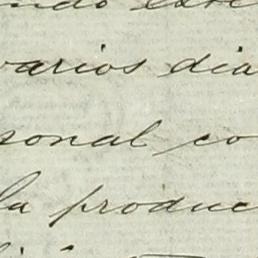 varios dia
sonal co
la produc